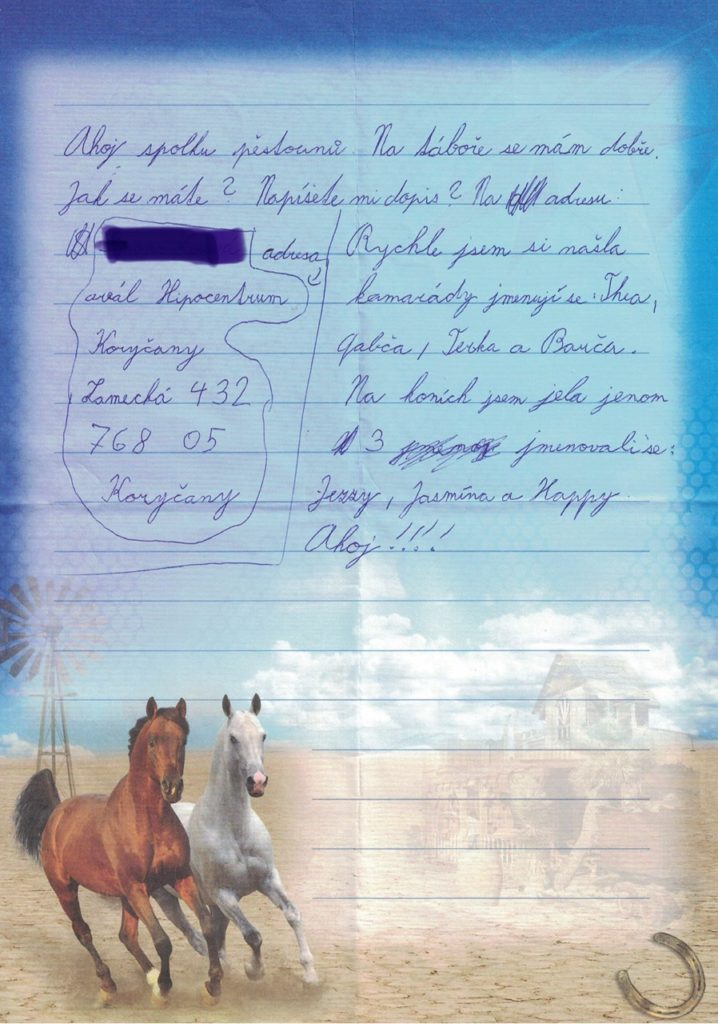 Ahoj spolku pěstounů. Na táboře se mám dobře.
Jak se máte? Napíšete mi dopis? Na adresu:
adresa
areál Hipocentrum
Koryčany
Zámecká 432
768 05
Koryčany
Rychle jsem si našla
kamarády jmenují se: Thea,
Gabča, Terka a Barča.
Na koních jsem jela jenom
3 jmenovali se:
Jezzy, Jasmína a Happy.
Ahoj!!!!